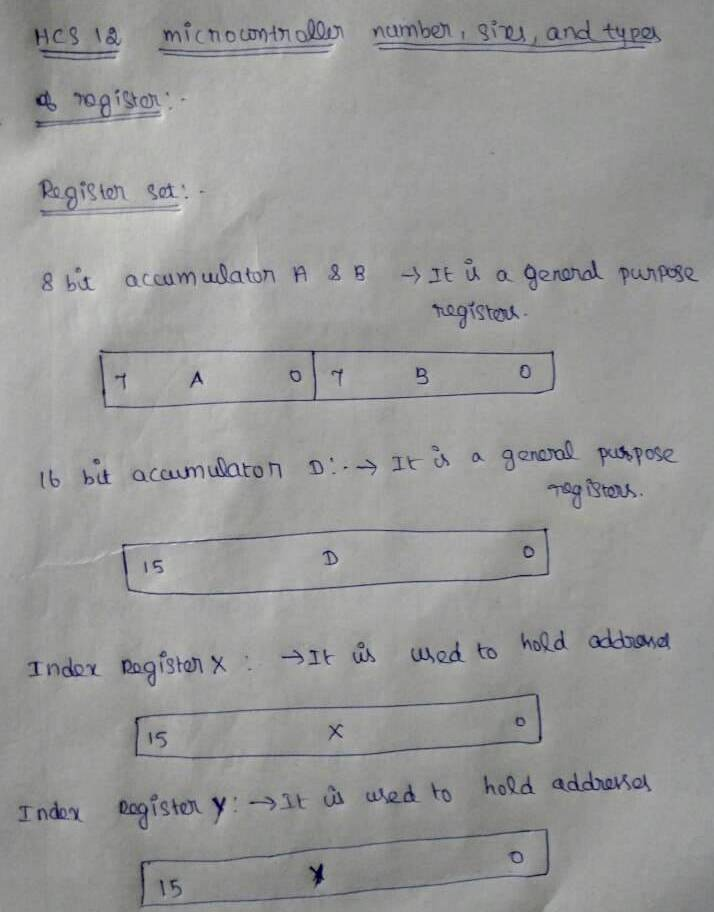 HCS 12 microcontroller number, sizes, and types
of register:-
Register set:-
8 bit accumulator A & B → It is a general purpose
registers.
7 A 0 7 B 0
16 bit accumulator D:- → It is a general purpose
registers.
15 D 0
Index Register X : → It is used to hold addresses
15 X 0
Index Register Y: → It is used to hold addresses
15 Y 0